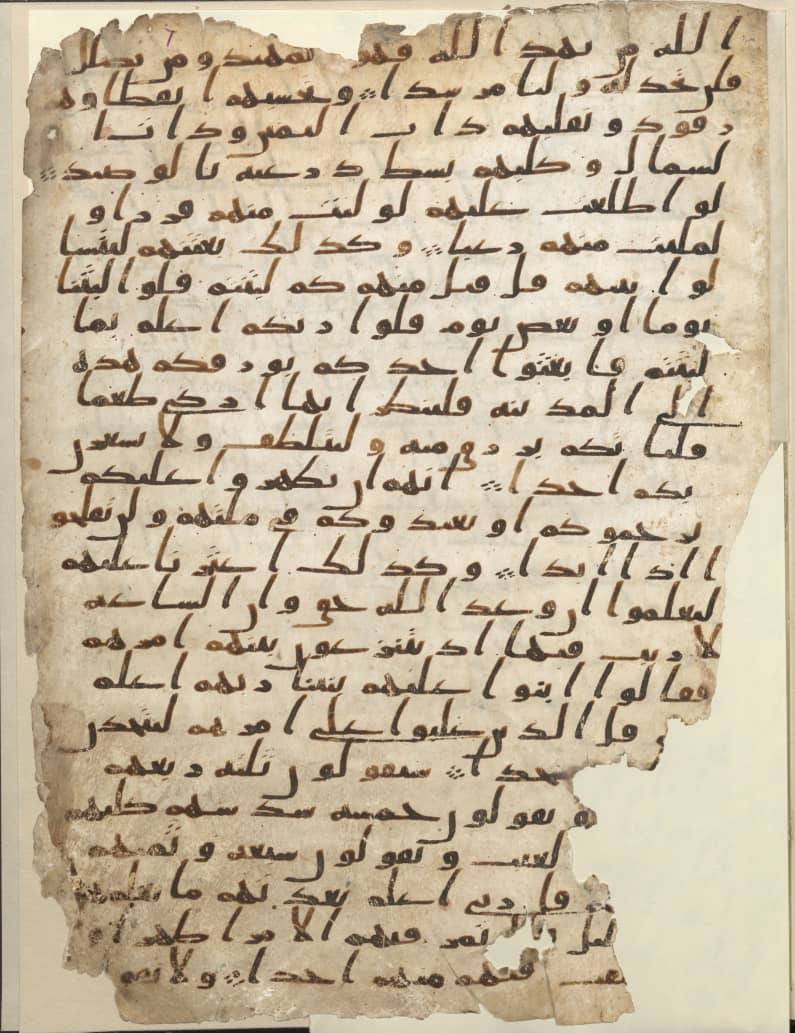 الله من يهد الله فهو المهتد ومن يضلل
فلن تجد له وليا مرشدا ۞ وتحسبهم ايقظا وهم
رقود ونقلبهم ذات اليمين وذات ا
لشمال وكلبهم بسط ذرعيه بالوصيد ۞
لو اطلعت عليهم لوليت منهم فررا و
لملئت منهم رعبا ۞ وكذلك بعثنهم ليتسا
لوا بينهم قل قئل منهم كم لبثتم قلوا لبثنا
يوما او بعض يوم قلوا ربكم اعلم بما
لبثتم فابعثوا احدكم بورقكم هذه
الى المدينه فلينظر ايها ازكى طعما
فلياتكم برزق منه وليتلطف ولا يشعرن
بكم احدا ۞ انهم ان يظهروا عليكم
يرجموكم او يعيدوكم في ملتهم ولن تفلحو
ا اذا ابدا ۞ وكذلك اعثرنا عليهم
ليعلموا ان وعد الله حق وان الساعه
لا ريب فيها اذ يتنزعون بينهم امرهم
فقالوا ابنوا عليهم بنينا ربهم اعلم
قل الذين غلبوا على امرهم لنتخذن
جدا ۞ سيقولون ثلثه ربعهم
ويقولون خمسه سدسهم كلبهم
لغيب ويقولون سبعه وثمنهم
قل ربي اعلم بعدتهم ما يعلمهم
ليل تمر فيهم الا مرا ظهرا
فيهم منهم احدا ۞ ولا تقو